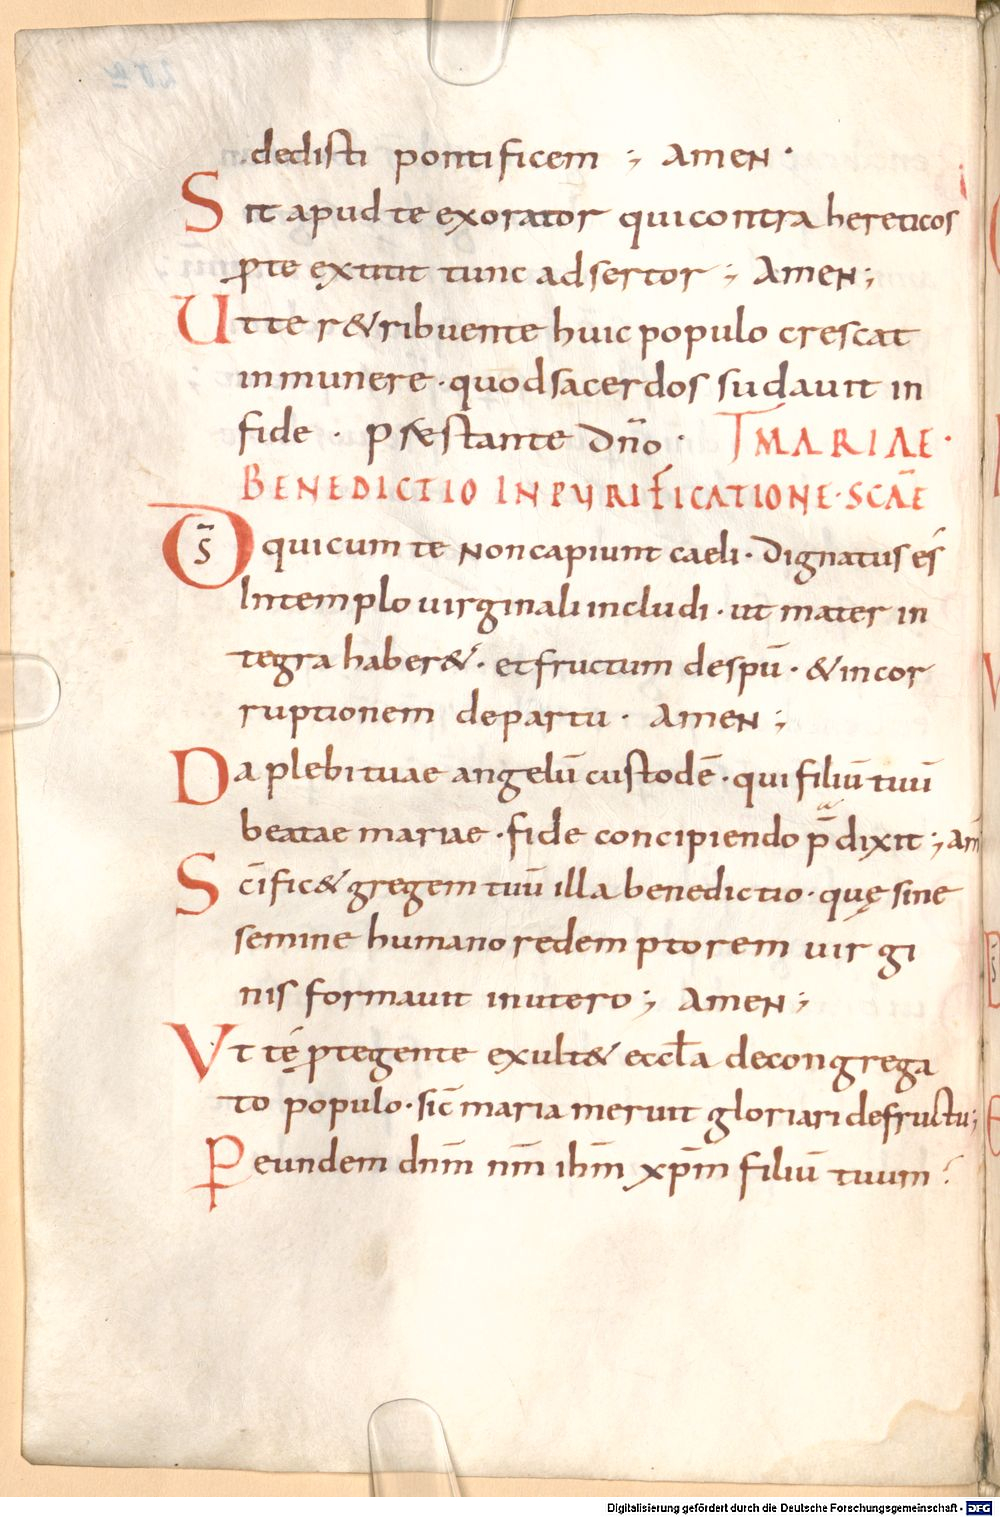 dedisti pontificem ; AMEN ·
Sit apud te exorator qui contra hereticos
ꝑte extitit tunc adsertor ; AMEN ;
Ut te r&ribuente huic populo crescat
in munere · quod sacerdos sudauit in
fide · praestante dño · MARIAE ·
BENEDICTIO IN PURIFICATIONE · SCĀE
D̄s qui cum te Non capiunt caeli · Dignatus es
In templo uirginali includi · ut mater in
tegra haber& · et fructum de spū · & incor
ruptionem de partu · AMEN ;
Da plebi tuae angelū custodē · qui filiū tuū
beatae mariae · fide concipiendo p̄dixit ; am̄
Sc̄ific& gregem tuū illa benedictio · quę sine
semine humano redemptorem uirgi
nis formauit in utero ; AMEN ;
Vt te ꝓtegente exult& eccła de congrega
to populo · sic̄ maria meruit gloriari de fructu ;
Per eundem dnm̄ nm̄ ihm̄ xp̄m filiū tuum
Digitalisierung gefördert durch die Deutsche Forschungsgemeinschaft - DFG